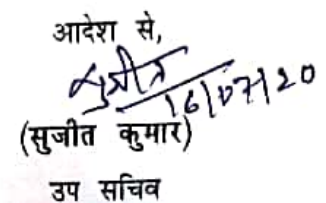 आदेश से,
सुजीत
16/07/20
(सुजीत कुमार)
उप सचिव